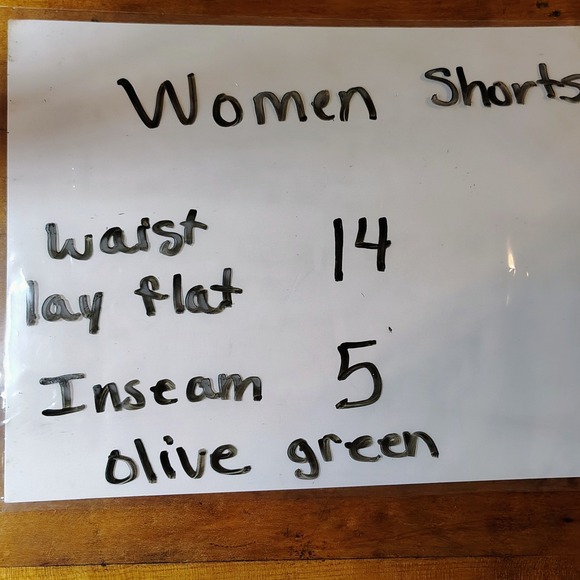 Women Shorts
waist 14
lay flat
Inseam 5
olive green